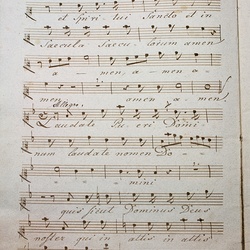 et Spiri tui Sancto et in
Saecula Saecu larum amen
a men, a men a
men amen amen,
allegro.
Laudate Pueri Domi
num laudate nomen Do
mini
quis sicut Dominus Deus
noster qui in altis in altis